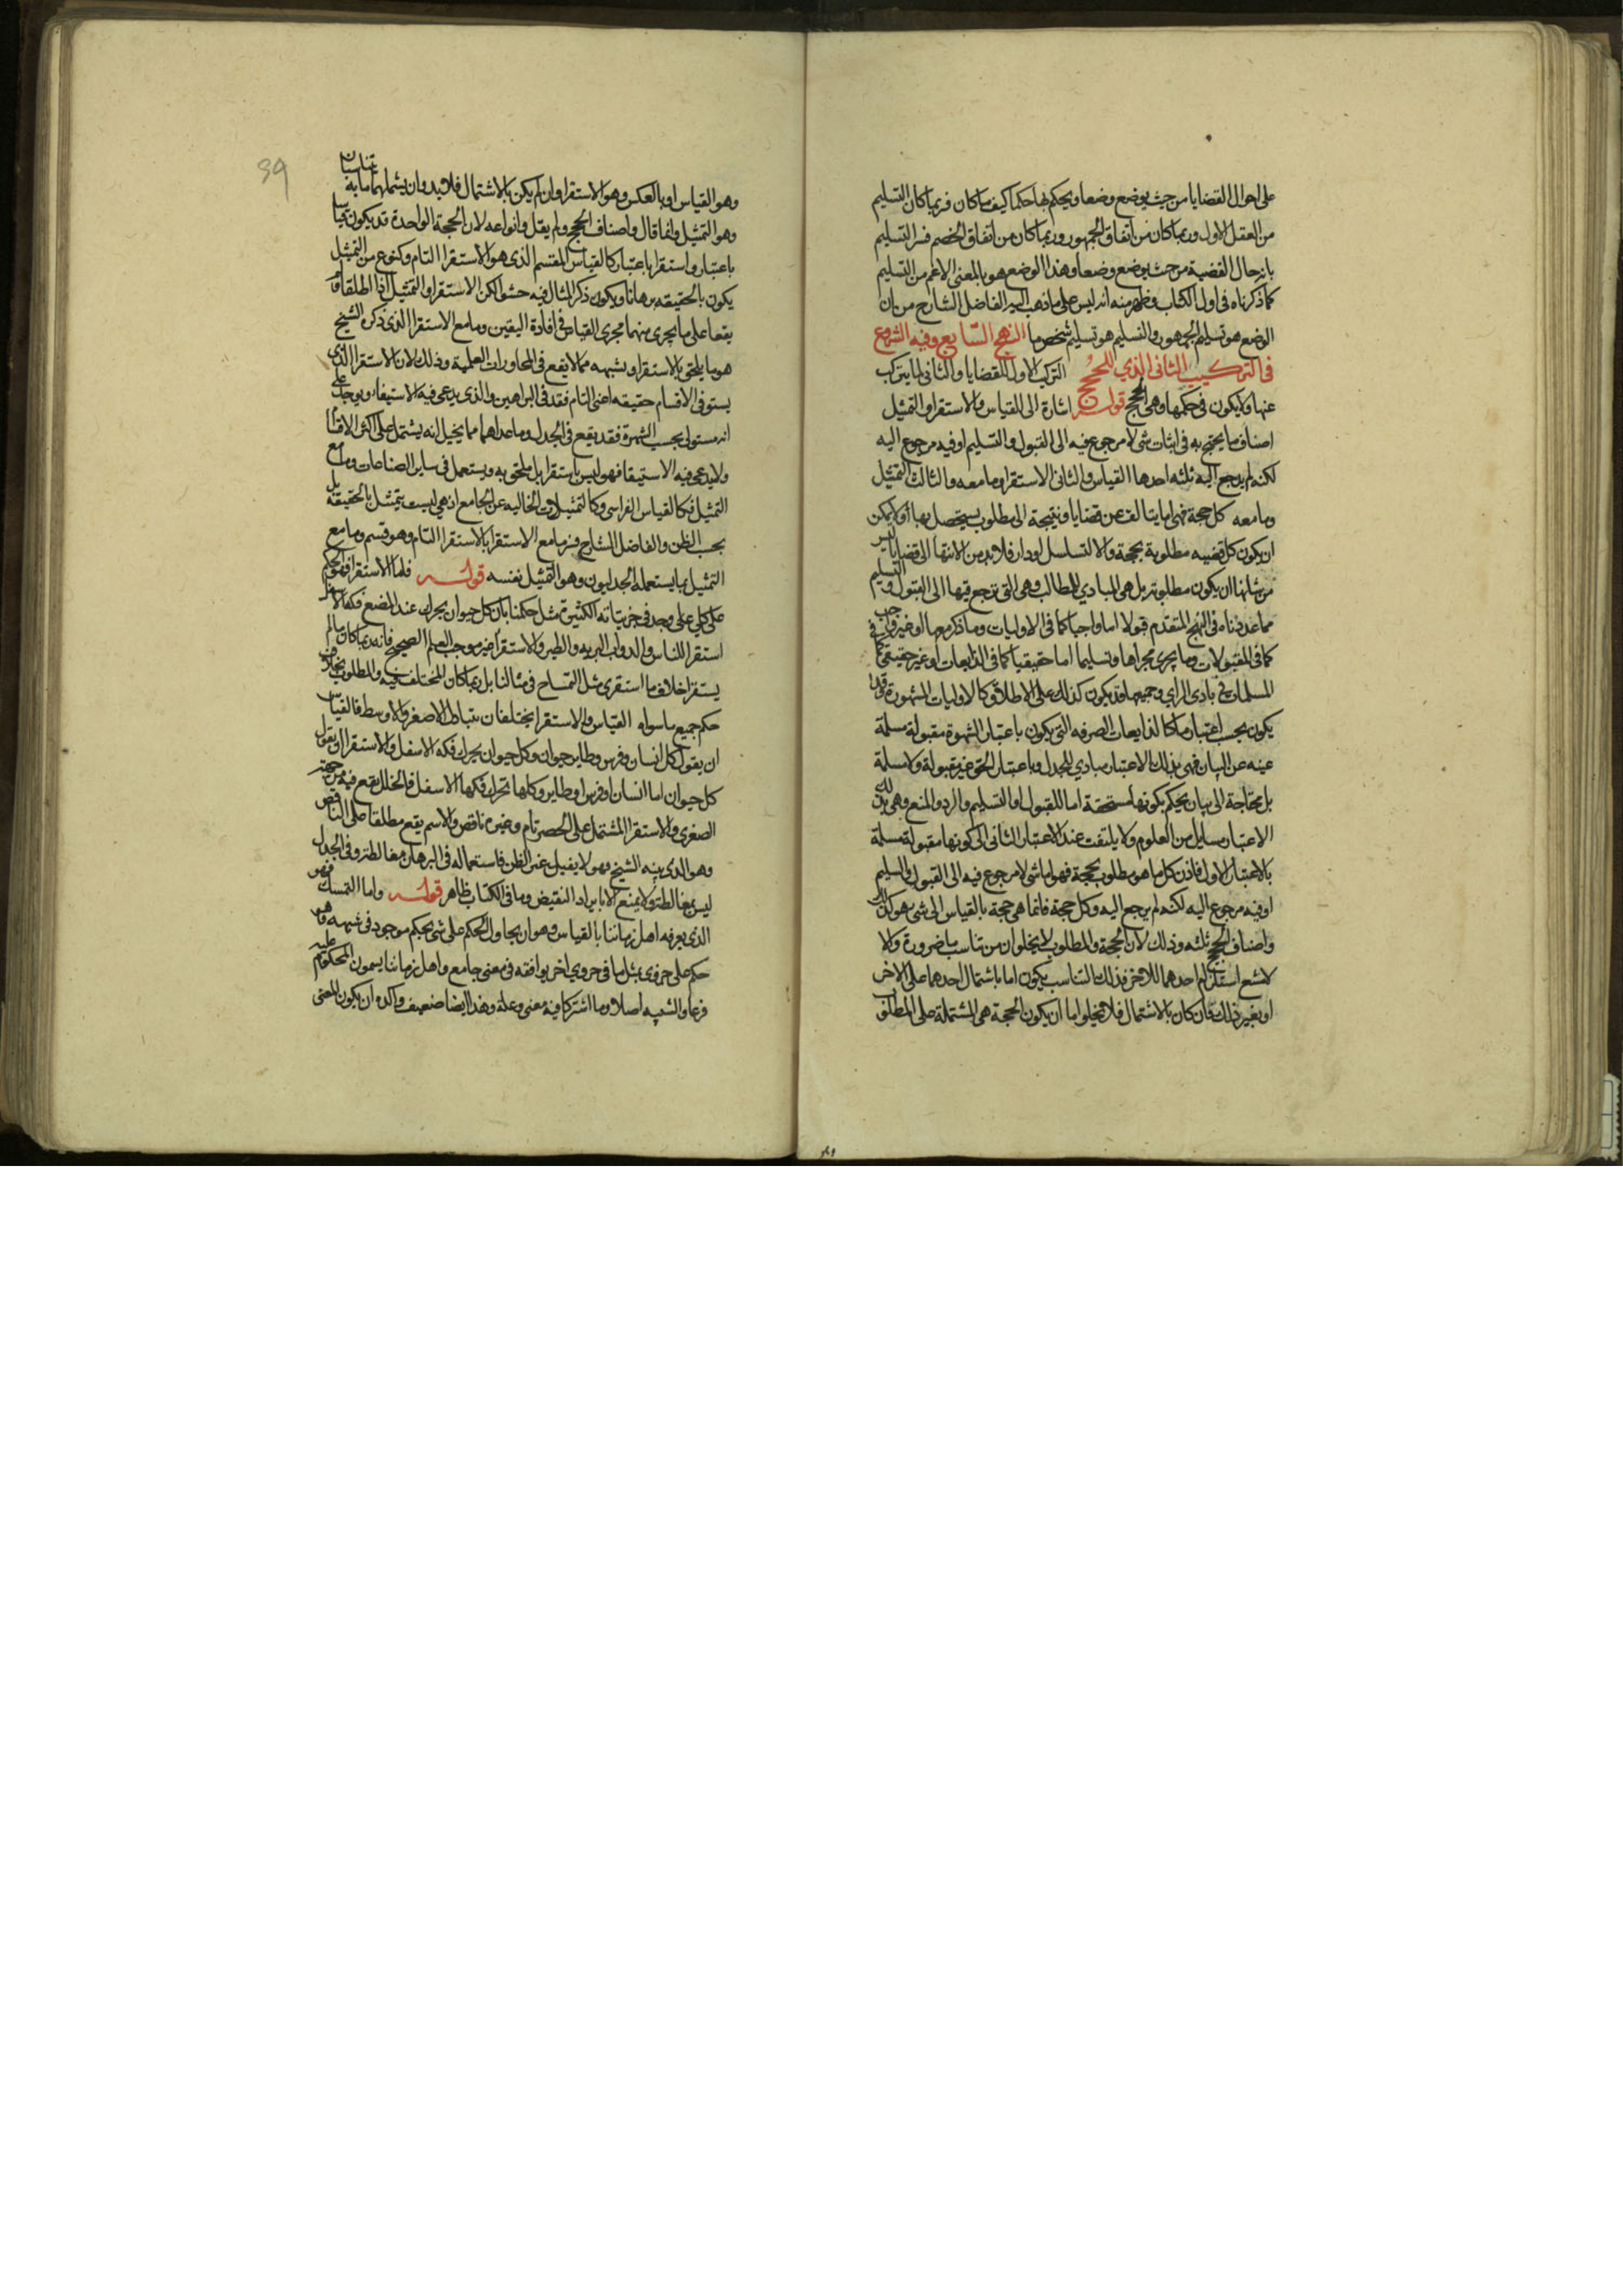 على احوال القضايا من حيث يوضع وضعا ويحكم بها حكما كيف ما كان فربما كان التسليم
من العقل الاول وربما كان من اتفاق الجمهور وربما كان من اتفاق الخصم فسر التسليم
بانه حال القضية من حيث يوضع وضعا وهذا الوضع هو بالمعنى الاعم من التسليم
كما ذكرناه في اول الكتاب وظهر منه انه ليس على ما ذهب اليه الفاضل الشارح من بان
الوضع هو تسليم الجمهور والتسليم هو تسليم شخص ما النهج السابع وفيه الشروع
في التركيب الثاني الذي للحجج التركيب الاول للقضايا والثاني لما يتركب
عنها ولا يكون في حكمها وهي الحجج قوله اشارة الى القياس والاستقرا والتمثيل
اصناف ما يحتج به في اثبات شي لا مرجوع فيه الى القبول والتسليم او فيه مرجوع اليه
لكنه لم يرجع اليه ثلثه احدها القياس والثاني الاستقرا وما معه والثالث التمثيل
وما معه كل حجة فهي اما يتالف عن قضايا ونتيجة الى مطلوب يستحصل بها ولا يمكن
ان يكون كل قضيه مطلوبة بحجة والا لتسلسل او دار فلا بد من الانتها الى قضايا ليس
من شانها ان يكون مطلوبة بل هي المبادي للمطالب وهي التي ترجع فيها الى القبول والتسليم
مما عددناه في النهج المتقدم قبولا اما واجبا كما في الاوليات وما ذكر معها او غير واجب
كما في المقبولات وما يجري مجراها وتسليما اما حقيقيا كما في الذايعات او غير حقيقي كما في
المسلمات في بادي الراي وجميعها قد يكون كذلك على الاطلاق كالاوليات المشهورة وقد
يكون بحسب اعتبار ما كالذايعات الصرفه التي يكون باعتبار الشهرة مقبولة مسلمة
غنيه عن البيان فهي بذلك الاعتبار مبادي للجدل وباعتبار الحق غير مقبولة ولا مسلمة
بل محتاجة الى بيان يحكم بكونها مستحقة اما للقبول او التسليم والرد والمنع وهي بذلك
الاعتبار مسايل من العلوم ولا يلتفت عند الاعتبار الثاني الى كونها مقبولة مسلمة
بالاعتبار الاول فاذن كل ما هو مطلوب بحجة فهو اما شي لا مرجوع فيه الى القبول والتسليم
او فيه مرجوع اليه لكنه لم يرجع اليه وكل حجة فانما هي حجة بالقياس الى شي هو كذلك
واصناف الحجج ثلثه وذلك لان الحجة والمطلوب لا يخلوان من تناسب ما ضرورة والا
لامتنع استلزام احدهما للاخر فذلك التناسب يكون اما باشتمال احدهما على الاخر
او بغير ذلك فان كان بالاشتمال فلا يخلوا اما ان يكون الحجة هي المشتملة على المطلوب
وهو القياس او بالعكس وهو الاستقرا وان لم يكن بالاشتمال فلا بد وان يشملهما ما به يتناسبان
وهو التمثيل وانما قال واصناف الحجج ولم يقل وانواعه لان الحجة الواحدة قد يكون قياسا
باعتبار واستقرا باعتبار كالقياس المقسم الذي هو الاستقرا التام وكنوع من التمثيل
يكون بالحقيقه برهانا ويكون ذكر المثال فيه حشوا لكن الاستقرا والتمثيل اذا اطلقا
يقعا على ما يجري منهما مجرى القياس في افادة اليقين وما مع الاستقرا الذي ذكره الشيخ
هو ما يلحق بالاستقرا ويشبهه مما لا يقع في المحاورات العلمية وذلك لان الاستقرا الذي
يستوفي الاقسام حقيقه اعني التام فقد في البراهين والذي يدعى فيه الاستيفا ويوجد على
انه مستوفى بحسب الشهرة فقد يقع في الجدل وما عداهما مما يخيل انه يشتمل على اكثر الاقسام
ولا يدعى فيه الاستيفا فهو ليس باستقرا بل ملحق به ويستعمل في ساير الصناعات وما مع
التمثيل فكالقياس الفراسي وكالتمثيلات الخاليه عن الجامع اذ هي ليست بتمثيل بالحقيقه بل
بحسب الظن والفاضل الشارح فسر ما مع الاستقرا بالاستقرا التام وهو قسم وما مع
التمثيل بما يستعمله الجدليون وهو التمثيل نفسه قوله فاما الاستقرا فهو الحكم
على كلي على وجد في جزئياته الكثيرة مثل حكمنا بان كل حيوان يحرك عند المضغ فكه الاسفل
استقرا للناس والدواب البرية والطير والاستقرا غير موجب العلم الصحيح فانه ربما كان ما لم
يستقرا خلاف ما استقري مثل التمساح في مثالنا بل ربما كان المختلف فيه والمطلوب بخلاف
حكم جميع ما سواه القياس والاستقرا يختلفان بتبادل الاصغر والاوسط فالقياس
ان يقول كل انسان وفرس وطاير حيوان وكل حيوان يحرك فكه الاسفل والاستقرا ان يقول
كل حيوان اما انسان او فرس او طاير وكلها تحرك فكها الاسفل فالخلل يقع فيه من جهة
الصغرى والاستقرا المشتمل على الحصر تام وغيره ناقص والاسم يقع مطلقا على الناقص
وهو الذي بينه الشيخ وهو لا يفيد غير الظن فاستعماله في البرهان مغالطة وفي الجدل
ليس بمغالطة ولا يمنع الا بايراد النقيض وما في الكتاب ظاهر قوله واما التمسك فهو
الذي يعرفه اهل زماننا بالقياس وهو ان يحاول الحكم على شي بحكم موجود في شبيهه وهو
حكم على جزوي بمثل ما في جزوي اخر يوافقه في معنى جامع واهل زماننا يسمون المحكوم عليه
فرعا والشبيه اصلا وما اشتركا فيه معنى وعلة وهذا ايضا ضعيف واكده ان يكون المعنى